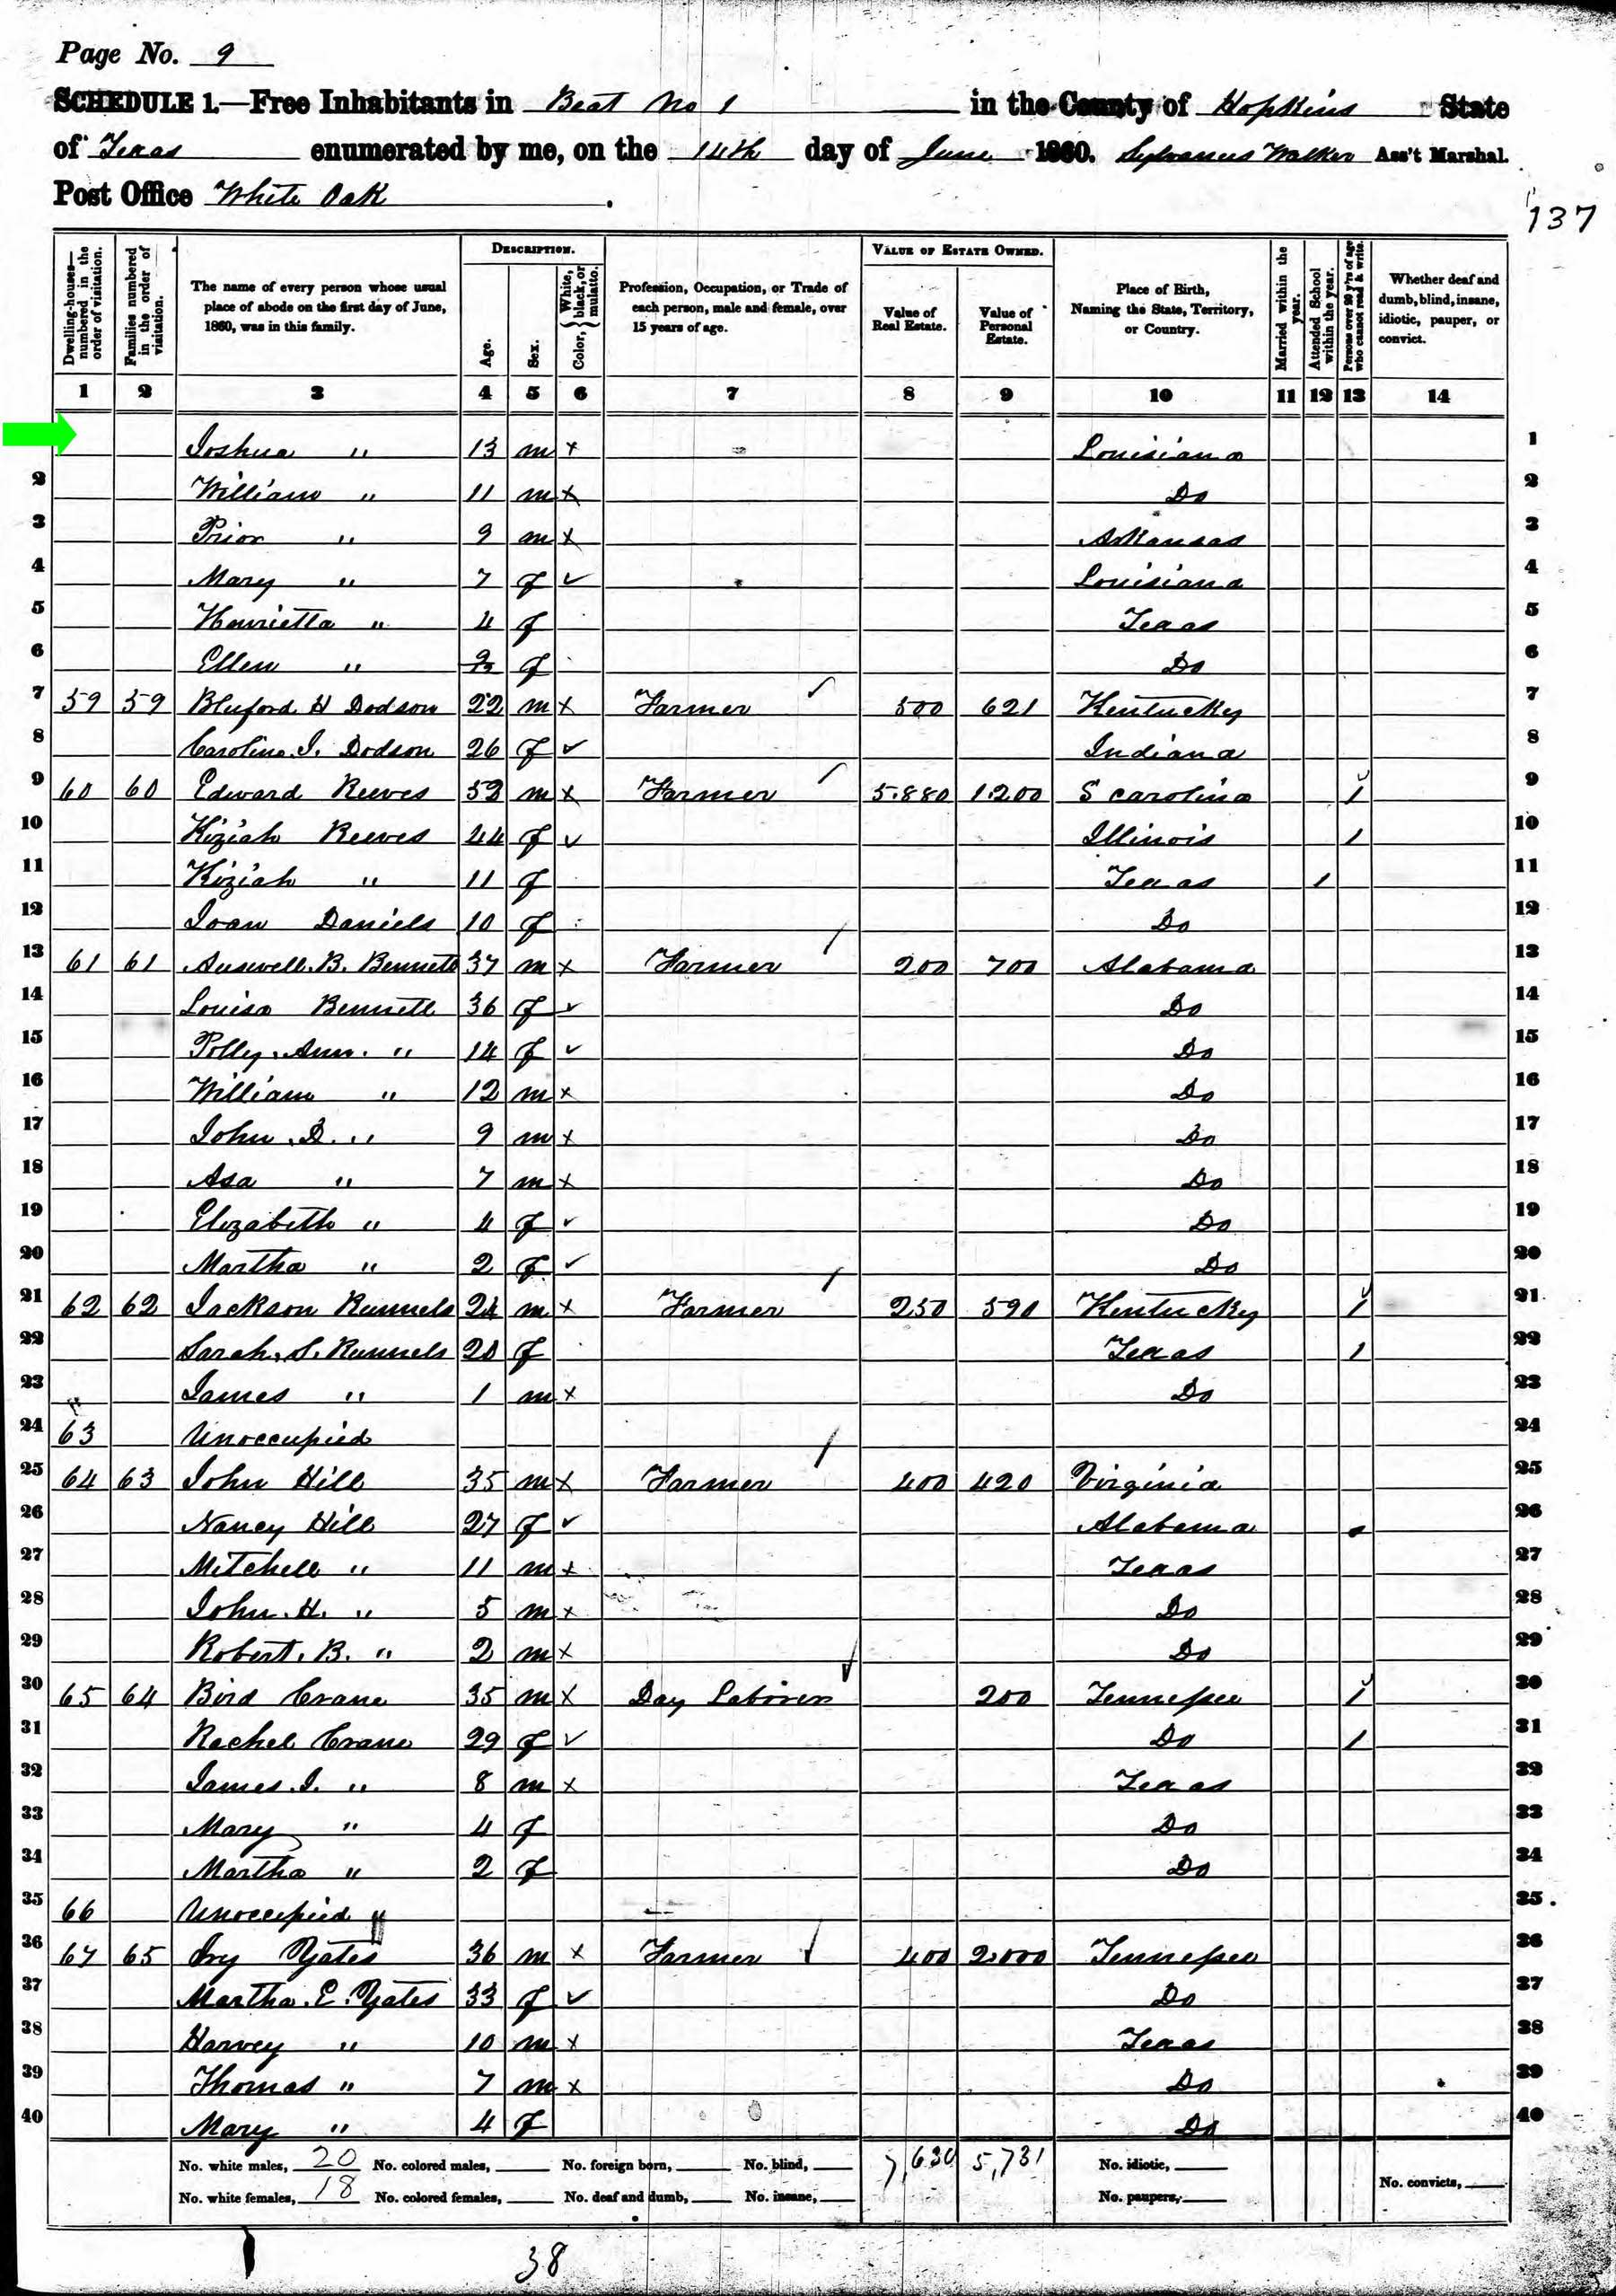 Page No. 9
SCHEDULE 1.—Free Inhabitants in Beat No 1 in the County of Hopkins State
of Texas enumerated by me, on the 14th day of June 1860. Sylvanus Walker Ass't Marshal.
Post Office White Oak.
137
Dwelling-houses—numbered in the order of visitation. Families numbered in the order of visitation. The name of every person whose usual place of abode on the first day of June, 1860, was in this family. DESCRIPTION. Age. Sex. Color, White, black, or mulatto. Profession, Occupation, or Trade of each person, male and female, over 15 years of age. VALUE OF ESTATE OWNED. Value of Real Estate. Value of Personal Estate. Place of Birth, Naming the State, Territory, or Country. Married within the year. Attended School within the year. Persons over 20 y'rs of age who cannot read & write. Whether deaf and dumb, blind, insane, idiotic, pauper, or convict.
1 2 3 4 5 6 7 8 9 10 11 12 13 14
Joshua " 13 m x Louisiana 1
2 William " 11 m x Do 2
3 Prior " 9 m x Arkansas 3
4 Mary " 7 f ✓ Louisiana 4
5 Henrietta " 4 f Texas 5
6 Ellen " 9/12 f Do 6
7 59 59 Bluford H Dodson 22 m x Farmer ✓ 500 621 Kentucky 7
8 Caroline J. Dodson 26 f ✓ Indiana 8
9 60 60 Edward Reeves 53 m x Farmer / 5.880 1.200 S carolina 1 9
10 Kiziah Reeves 44 f ✓ Illinois 1 10
11 Kiziah " 11 f Texas 1 11
12 Joan Daniels 10 f Do 12
13 61 61 Auswell. B. Bennett 37 m x Farmer / 200 700 Alabama 13
14 Louisa Bennett 36 f ✓ Do 14
15 Polly. Ann. " 14 f ✓ Do 15
16 William " 12 m x Do 16
17 John. D. " 9 m x Do 17
18 Asa " 7 m x Do 18
19 Elizabeth " 4 f ✓ Do 19
20 Martha " 2 f ✓ Do 20
21 62 62 Jackson Runnels 24 m x Farmer / 250 590 Kentucky 1 21
22 Sarah. S. Runnels 20 f Texas 1 22
23 James " 1 m x Do 23
24 63 Unoccupied 24
25 64 63 John Hill 35 m x Farmer / 400 420 Virginia 25
26 Nancy Hill 27 f ✓ Alabama 26
27 Mitchell " 11 m x Texas 27
28 John. H. " 5 m x Do 28
29 Robert. B. " 2 m x Do 29
30 65 64 Bird Crane 35 m x Day Laborer ✓ 200 Tennessee 1 30
31 Rachel Crane 29 f ✓ Do 1 31
32 James. J. " 8 m x Texas 32
33 Mary " 4 f Do 33
34 Martha " 2 f Do 34
35 66 Unoccupied " 35
36 67 65 Ivy Yates 36 m x Farmer ✓ 400 2.000 Tennessee 36
37 Martha. E. Yates 33 f ✓ Do 37
38 Harvey " 10 m x Texas 38
39 Thomas " 7 m x Do 39
40 Mary " 4 f Do 40
No. white males, 20 No. colored males, No. foreign born, No. blind, 7,630 5,731 No. idiotic,
No. white females, 18 No. colored females, No. deaf and dumb, No. insane, No. paupers, No. convicts,
38